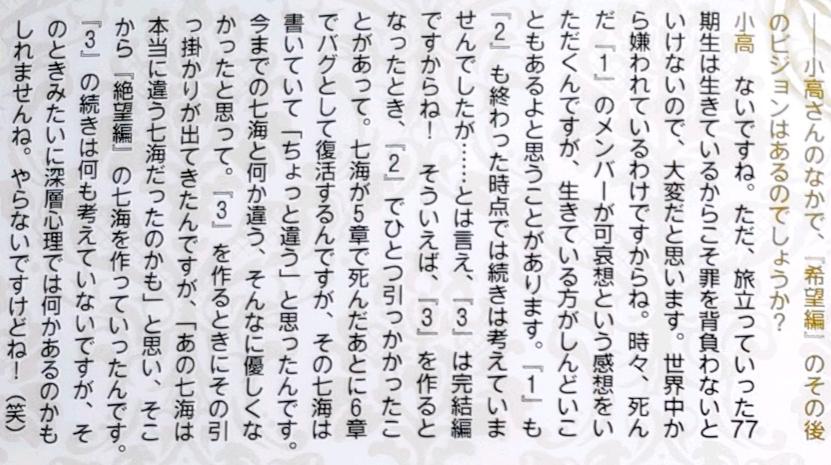 ── 小高さんのなかで、『希望編』のその後
のビジョンはあるのでしょうか?
小高 ないですね。ただ、旅立っていった77
期生は生きているからこそ罪を背負わないと
いけないので、大変だと思います。世界中か
ら嫌われているわけですからね。時々、死ん
だ『1』のメンバーが可哀想という感想をい
ただくんですが、生きている方がしんどいこ
ともあるよと思うことがあります。『1』も
『2』も終わった時点では続きは考えていま
せんでしたが……とは言え、『3』は完結編
ですからね! そういえば、『3』を作ると
なったとき、『2』でひとつ引っかかったこ
とがあって。七海が5章で死んだあとに6章
でバグとして復活するんですが、その七海は
書いていて「ちょっと違う」と思ったんです。
今までの七海と何か違う、そんなに優しくな
かったと思って。『3』を作るときにその引
っ掛かりが出てきたんですが、「あの七海は
本当に違う七海だったのかも」と思い、そこ
から『絶望編』の七海を作っていったんです。
『3』の続きは何も考えていないですが、そ
のときみたいに深層心理では何かあるのかも
しれませんね。やらないですけどね!(笑)